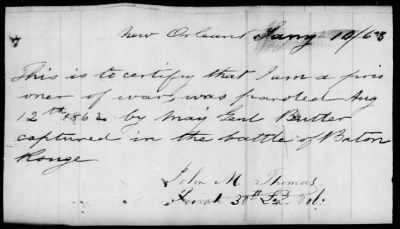 New Orleans Jany 10/63
This is to certify that I am a pris
oner of war, was paroled Aug
12th 1862 by Maj Genl Butler
captured in the battle of Baton
Rouge
John M Thomas
30th La Vol.